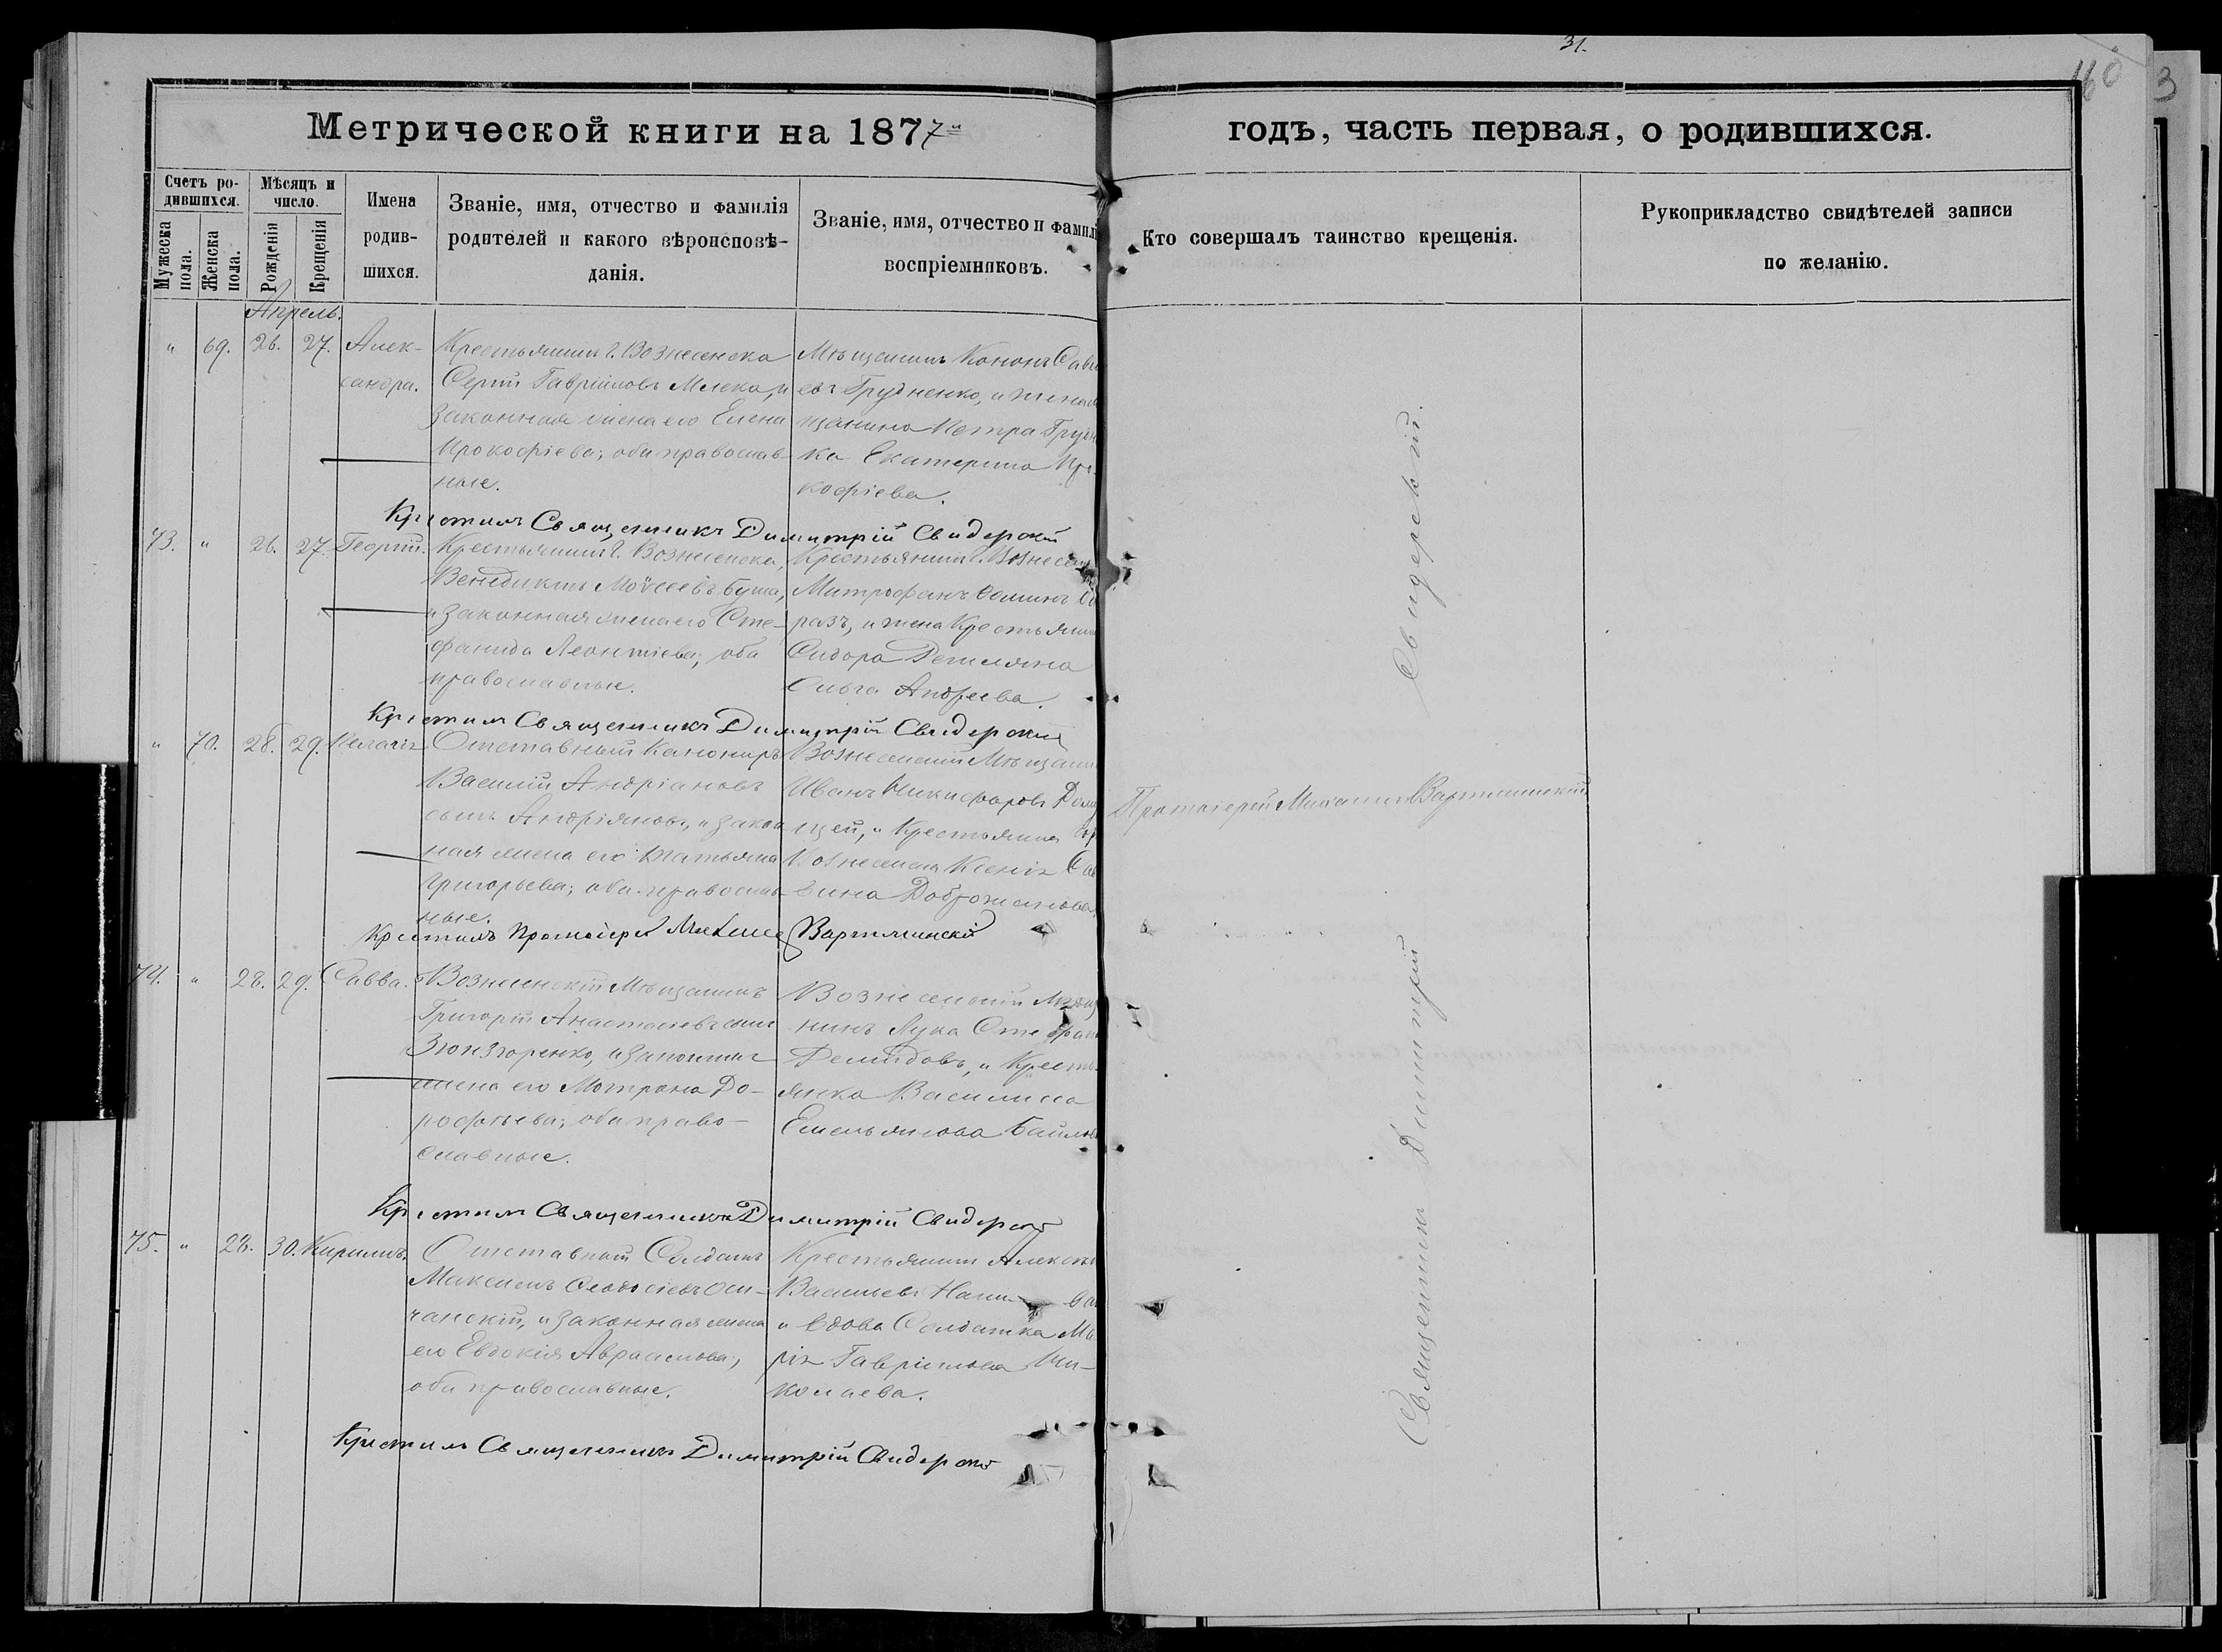 31.
160
3
Метрической книги на 1877й
годъ, часть первая, о родившихся.
Счетъ ро-
дившихся.
Мужеска
пола.
Женска
пола.
Мѣсяцъ и
число.
Рожденія
Крещенія
Имена
родив-
шихся.
Званіе, имя, отчество и фамилія
родителей и какого вѣроисповѣ-
данія.
Званіе, имя, отчество и фамил
воспріемниковъ.
Кто совершалъ таинство крещенія.
Рукоприкладство свидѣтелей записи
по желанію.
Апрель.
" 69. 26. 27. Алек-
сандра.
Крестьянинъ г. Вознесенска
Сергій Гавріиловъ Млека, и
законная жена его Елена
Прокофіева; оба православ-
ные.
Мѣщанинъ Кононъ
евъ Грудненко, и жена
щанина Петра
ка Екатерина Про-
кофіева.
Крестилъ Священникъ Димитрій Свидерскій
73. " 26. 27. Георгій.
Крестьянинъ г. Вознесенска,
Венедиктъ Моѵсеевъ Буша,
и законная жена его Сте-
фанида Леонтіева; оба
православные.
Крестьянинъ г. Вознесен
Митрофанъ
разъ, и жена Крестьянин
Сидора
Ольга Андреева.
Крестилъ Священникъ Димитрій Свидерскій
" 70. 28. 29. Пелагія
Отставный Канониръ
Василій Андріановъ
сынъ Андріяновъ, и закон
ная жена его Татьяна
Григорьева; оба православ-
ные.
Вознесенскій Мѣщанин
Иванъ Никифоровъ
щей, и Крестьянка
Вознесенска Ксенія Сав
вина Доброжанова.
Протоіерей Михаилъ Вартминскій
Крестилъ Протоіерей Михаилъ Вартминскій
74. " 28. 29. Савва.
Вознесенскій Мѣщанинъ
Григорій Анастасіевъ сынъ
и законная
жена его Мотрона До-
рофѣева; оба право-
славные.
Вознесенскій Мѣщ
нинъ Лука Стефан
Демидовъ, и Кресть-
янка Василиса
Емельянова
Крестилъ Священникъ Димитрій Свидерскій
75. " 28. 30. Кириллъ.
Отставный Солдатъ
Максимъ Ѳеодосіевъ Оси-
чанскій, и законная жена
его Евдокія Авраамова;
оба православные.
Крестьянинъ Алексѣй
Васильевъ
и вдова Солдатка Ма
рія Гавріилова Ни-
колаева.
Крестилъ Священникъ Димитрій Свидерскій
Священникъ Димитрій Свидерскій.